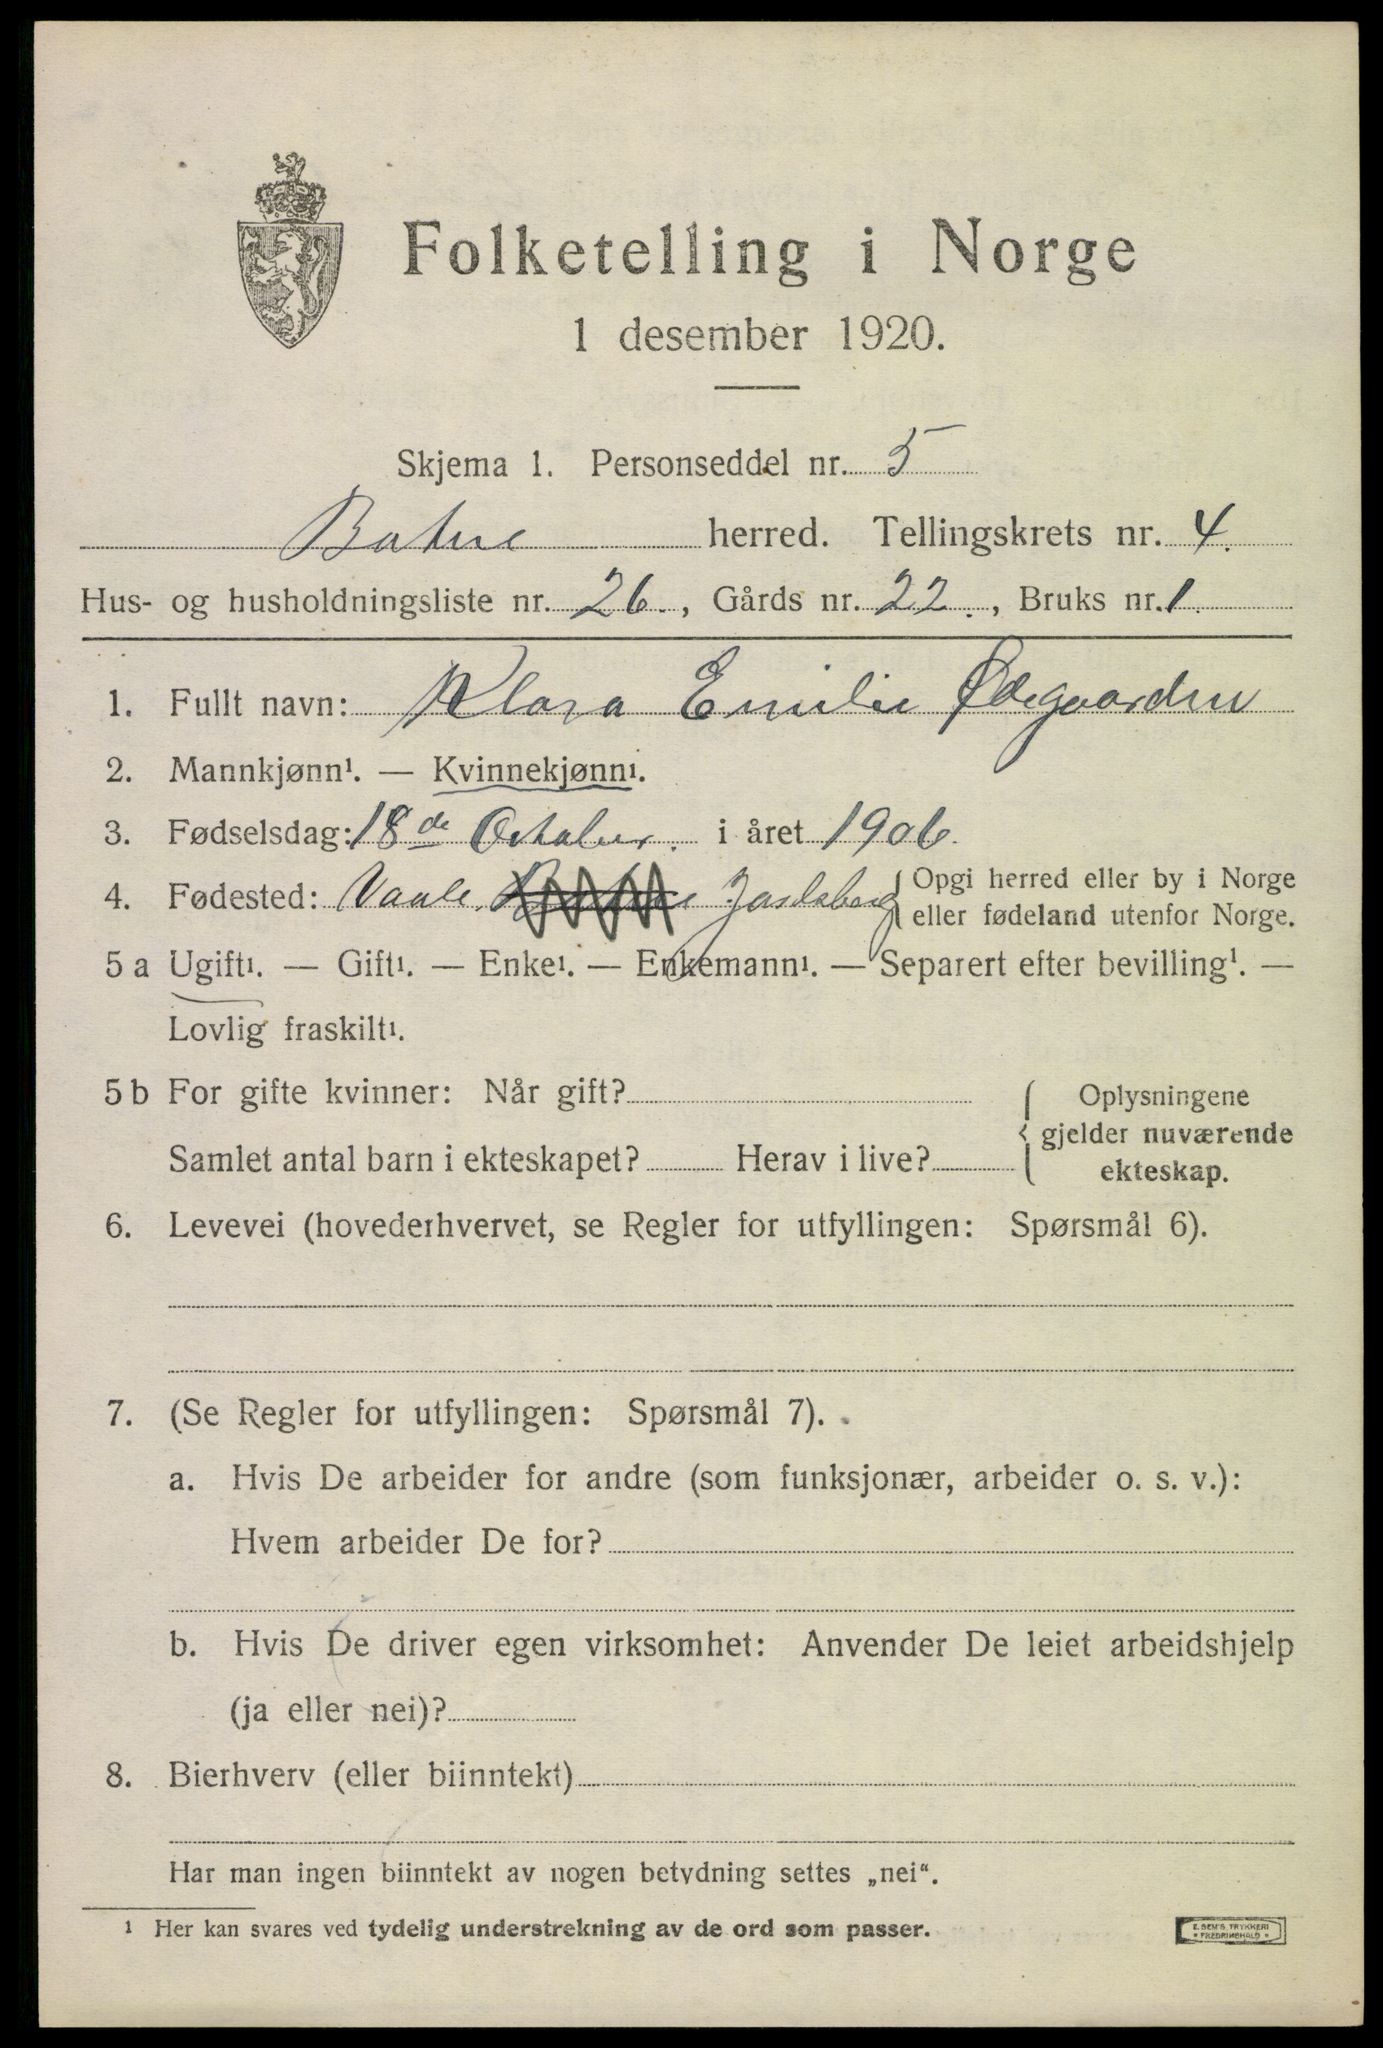 Folketelling i Norge
1 desember 1920.
Skjema 1. Personseddel nr. 5
Botne herred. Tellingskrets nr. 4.
Hus- og husholdningsliste nr. 26., Gårds nr. 22., Bruks nr. 1.
1. Fullt navn: Klara Emilie Ødegaarden
2. Mannkjønn¹. — Kvinnekjønn¹.
3. Fødselsdag: 18de October. i året 1906.
4. Fødested: Vaale, Jarlsberg { Opgi herred eller by i Norge
eller fødeland utenfor Norge.
5 a Ugift¹. — Gift¹. — Enke¹. — Enkemann¹. — Separert efter bevilling¹. —
Lovlig fraskilt¹.
5 b For gifte kvinner: Når gift?
Samlet antal barn i ekteskapet? Herav i live?
{ Oplysningene
gjelder nuværende
ekteskap.
6. Levevei (hovederhvervet, se Regler for utfyllingen: Spørsmål 6).
7. (Se Regler for utfyllingen: Spørsmål 7).
a. Hvis De arbeider for andre (som funksjonær, arbeider o. s. v.):
Hvem arbeider De for?
b. Hvis De driver egen virksomhet: Anvender De leiet arbeidshjelp
(ja eller nei)?
8. Bierhverv (eller biinntekt)
Har man ingen biinntekt av nogen betydning settes „nei“.
¹ Her kan svares ved tydelig understrekning av de ord som passer.
E. SEM'S TRYKKERI
* FREDRIKSHALD *